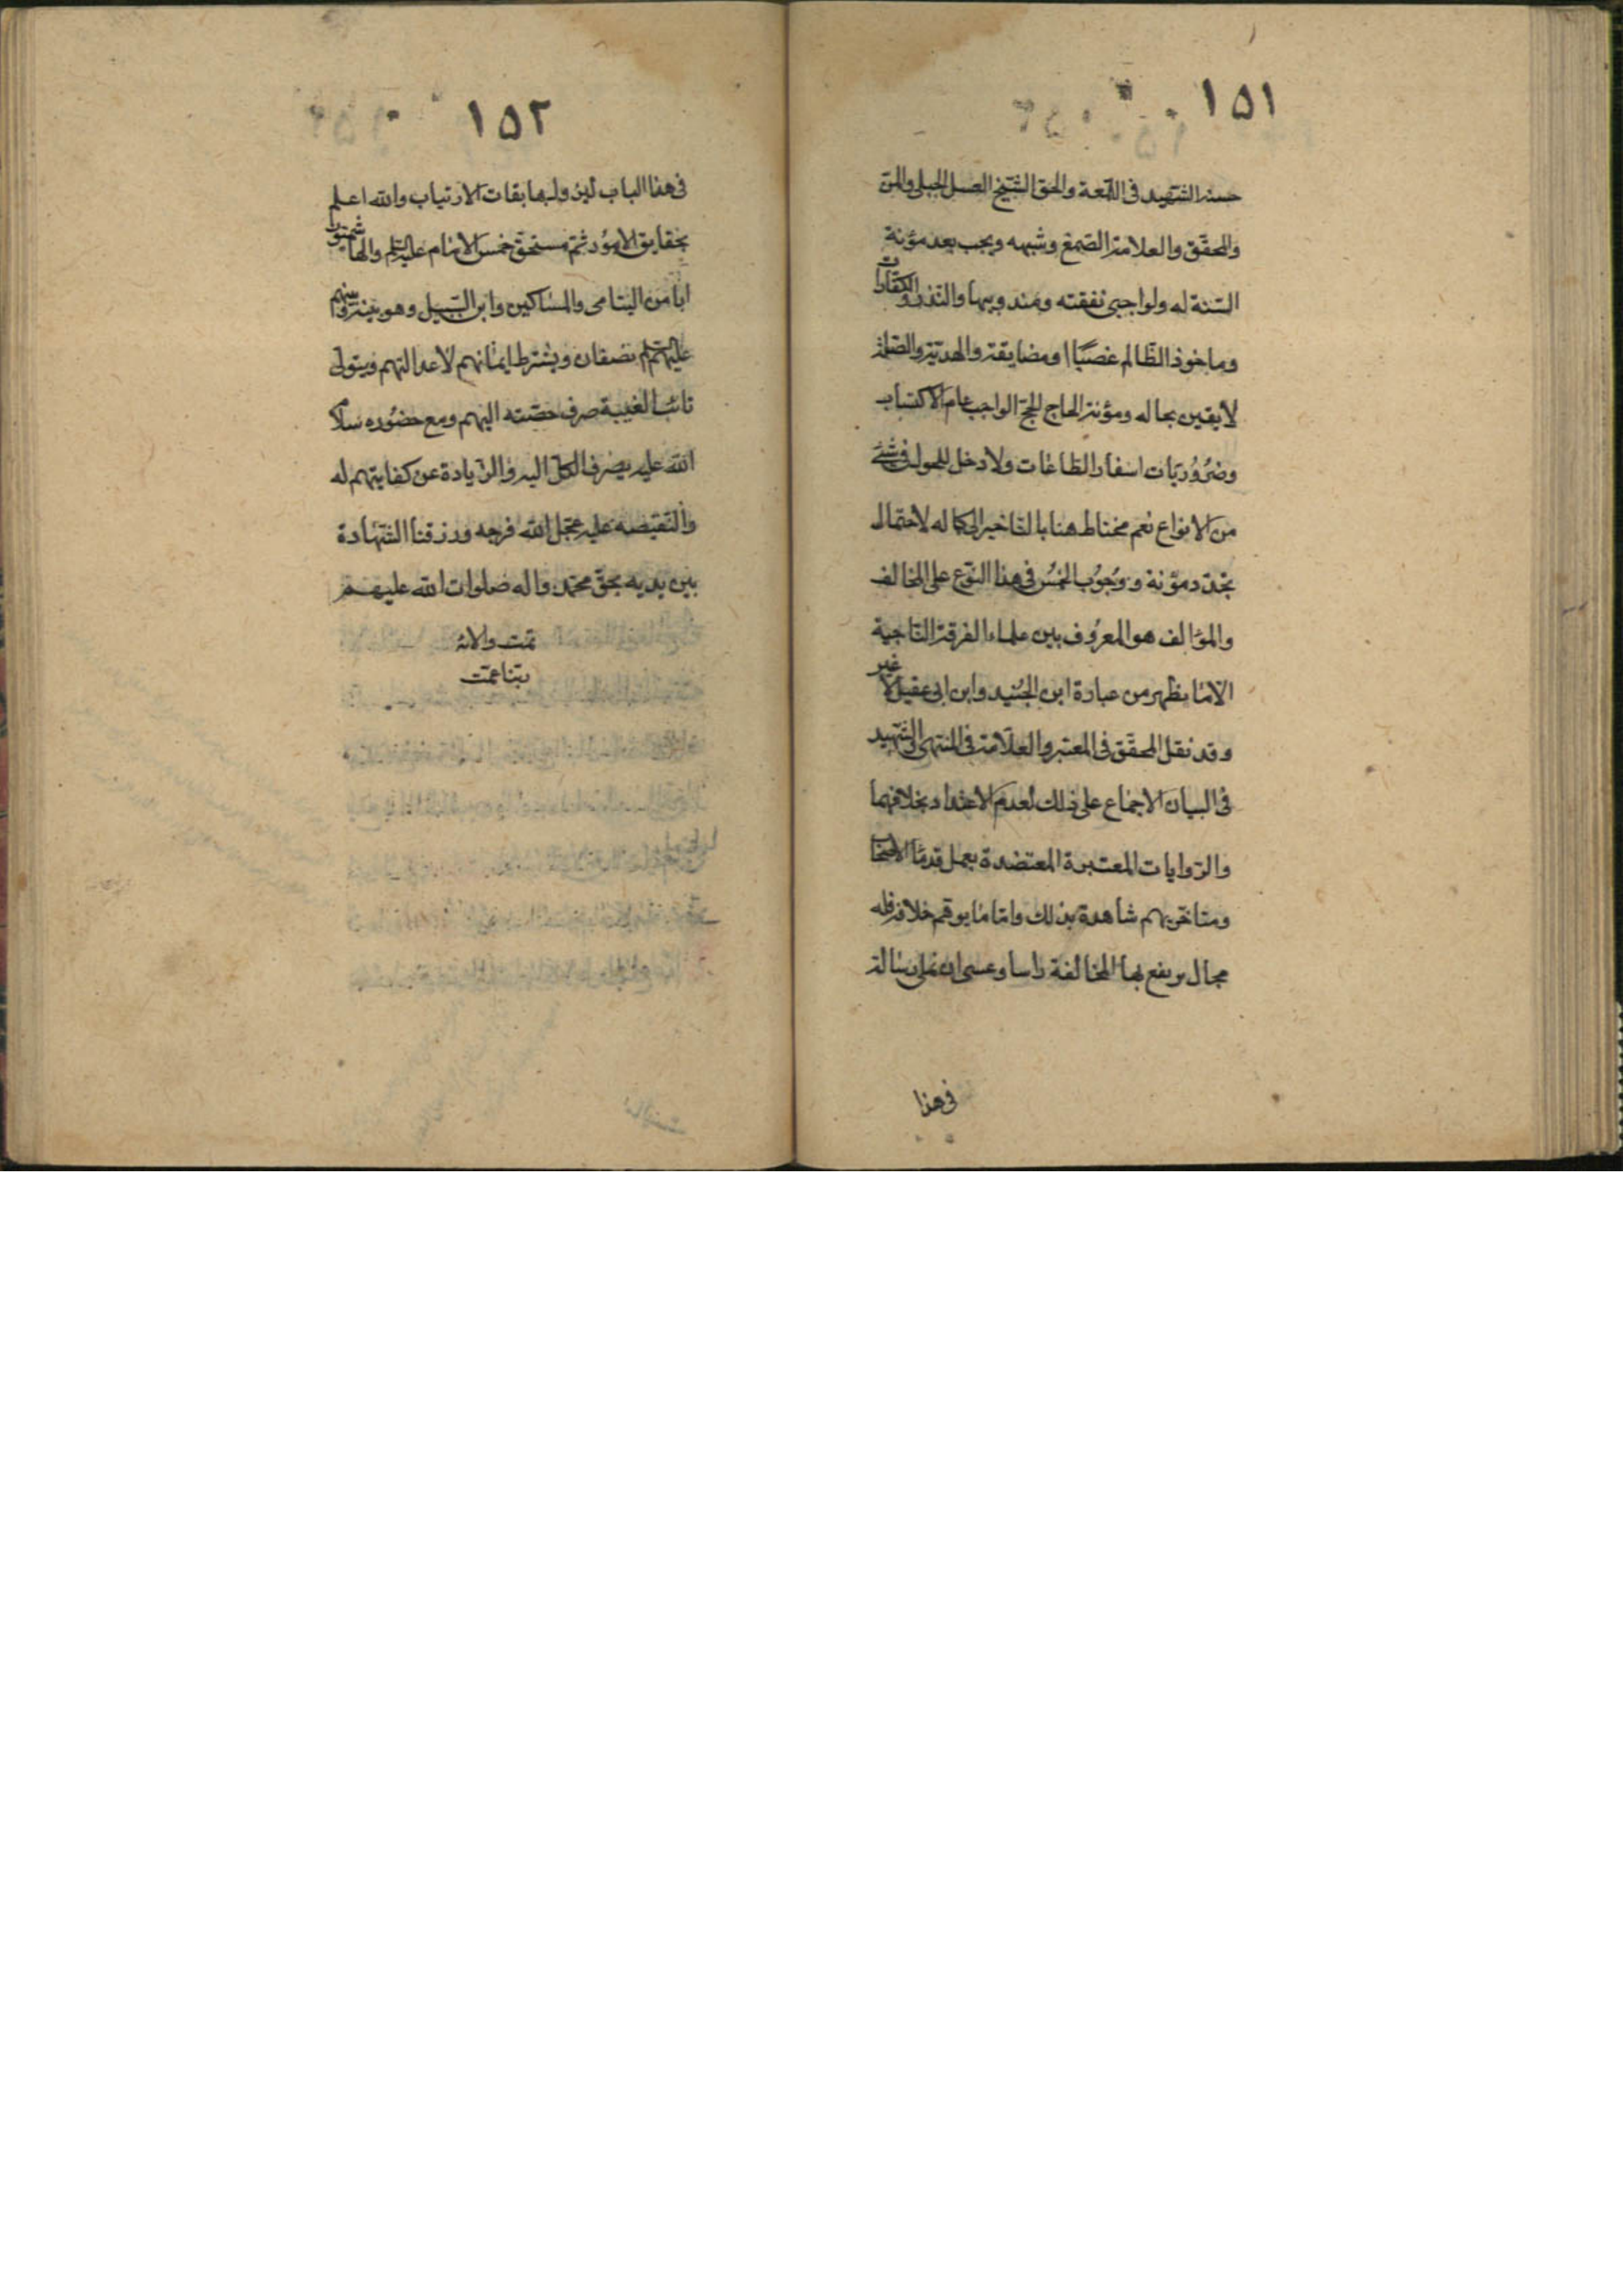 ١٥١
حسنه الشهيد في اللمعة والحق الشيخ العسل الجبلي والمن
والمحقق والعلامة الصمغ وشبهه ويجب بعد مؤنة
السنة له ولواجبى نفقته ومندوبيها والنذر والكفارات
وماخوذ الظالم غصبًا او مضايقة والهدية والصلة
لايقين بحاله ومؤنة الحاج للحج الواجب عام الاكتساب
وضروريات اسفار الطاعات ولا دخل للحول في شئ
من الانواع نعم يحتاط هنا بالتاخير الى كماله لاحتمال
تجدد مؤنة ووجوب الخمس في هذا النوع على المخالف
والمؤالف هو المعروف بين علماء الفرقة الناجية
الا ما يظهر من عبارة ابن الجنيد وابن ابى عقيل لا غير
وقد نقل المحقق في المعتبر والعلامة في المنتهى والشهيد
في البيان الاجماع على ذلك لعدم الاعتداد بخلافهما
والروايات المعتبرة المعتضدة بعمل قدماء الاصحا
ومتاخريهم شاهدة بذلك واما ما يوهم خلافه فله
مجال يرتفع بها المخالفة راسا وعسى ان نملى رسالة
في هذا
١٥٢
في هذا الباب لين ولها بقات الارتياب والله اعلم
بحقايق الامور ثم مستحق خمس الامام عليه السلم والهاشميون
ابا من اليتامى والمساكين وابن السبيل وهو بينه وبينهم
عليهم السلم نصفان ويشترط ايمانهم لا عدالتهم ويتولى
نائب الغيبة صرف حصته اليهم ومع حضوره سلام
الله عليه يصرف الكل اليه والزيادة عن كفايتهم له
والنقيصه عليه عجل الله فرجه ورزقنا الشهادة
بين يديه بحق محمد واله صلوات الله عليهم
تمت